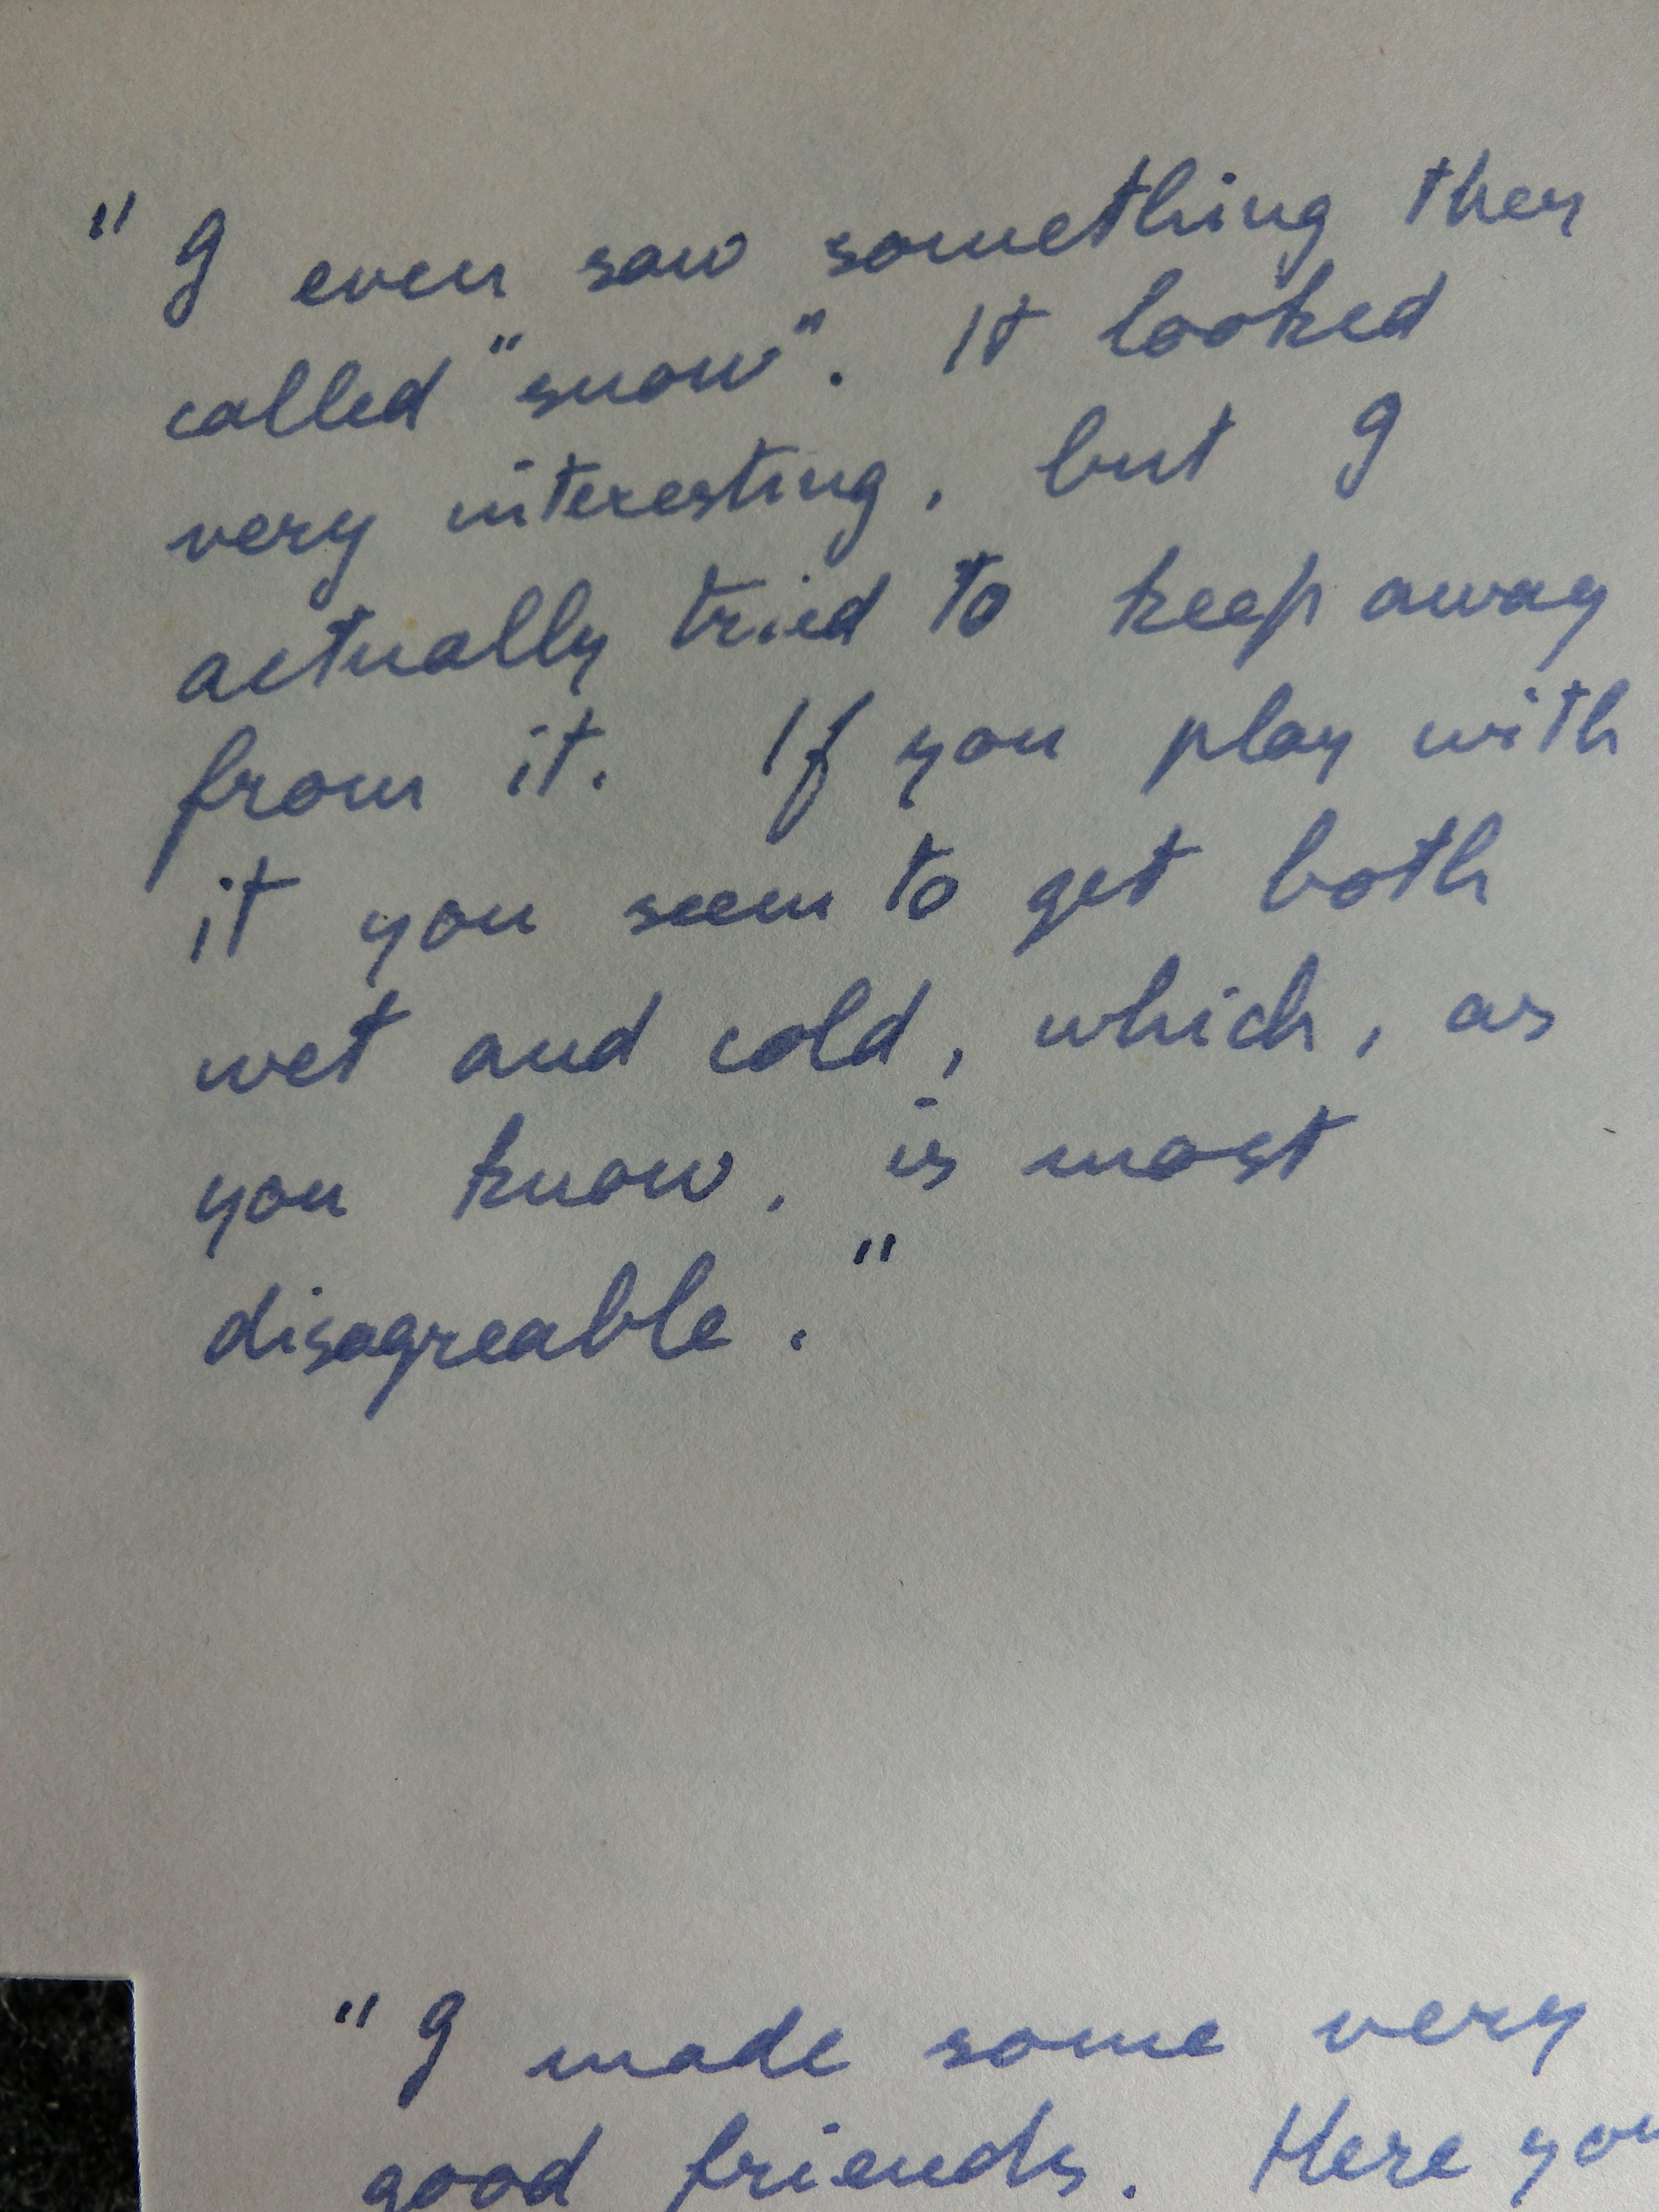 "I even saw something then
called "snow". It looked
very interesting, but I
actually tried to keep away
from it. If you play with
it you seem to get both
wet and cold, which, as
you know, is most
disagreable."
"I made some very
good friends. Here you